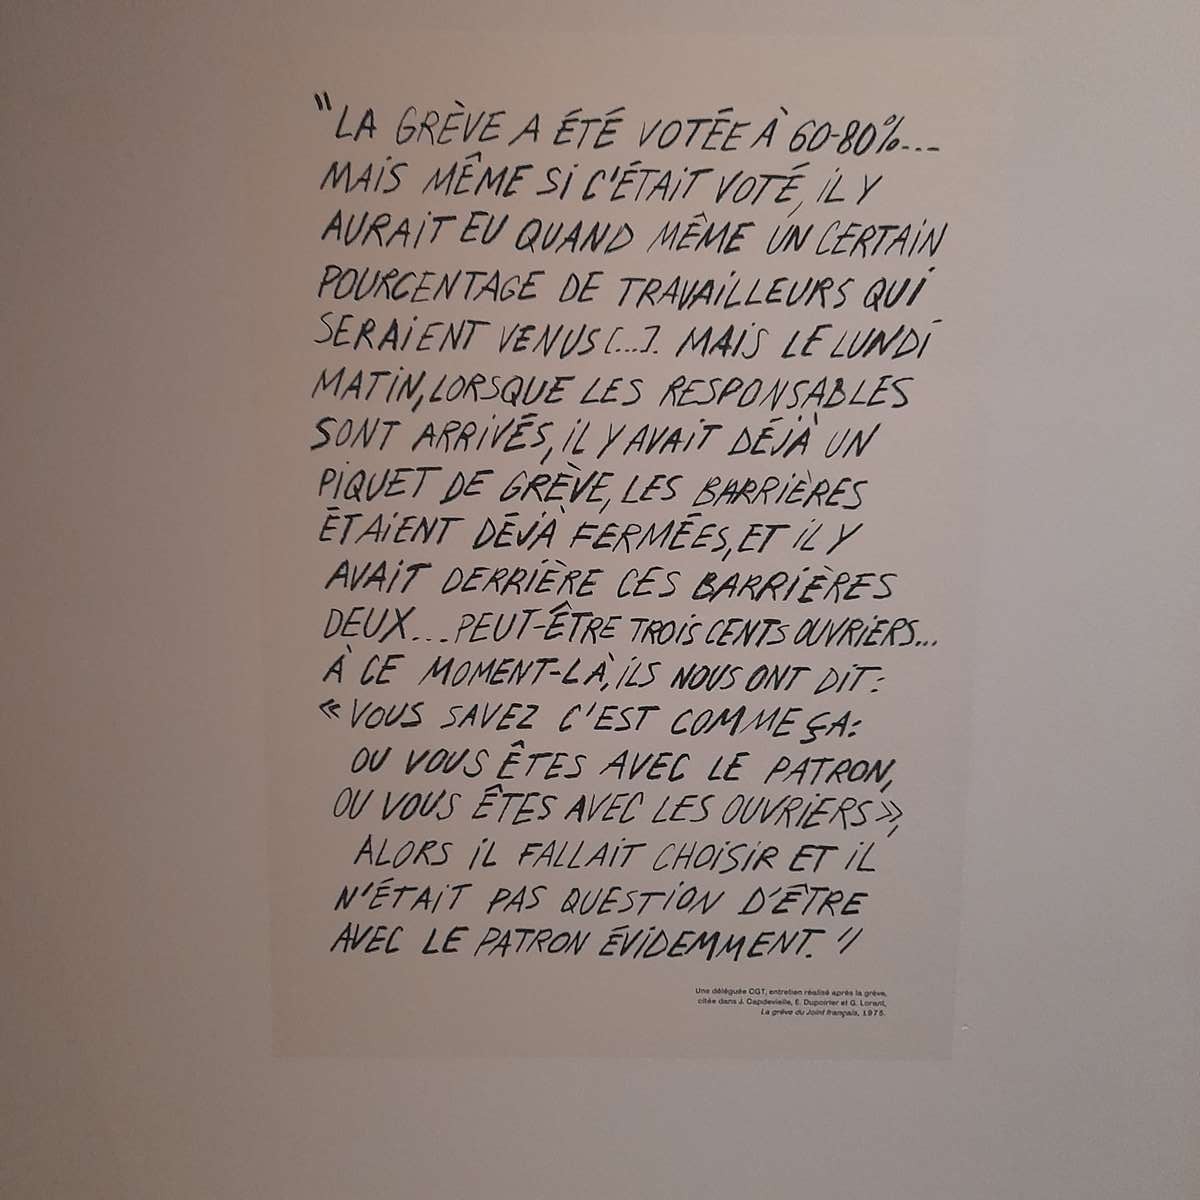 "LA GRÈVE A ÉTÉ VOTÉE À 60-80%...
MAIS MÊME SI C'ÉTAIT VOTÉ, IL Y
AURAIT EU QUAND MÊME UN CERTAIN
POURCENTAGE DE TRAVAILLEURS QUI
SERAIENT VENUS [...]. MAIS LE LUNDI
MATIN, LORSQUE LES RESPONSABLES
SONT ARRIVÉS, IL Y AVAIT DÉJÀ UN
PIQUET DE GRÈVE, LES BARRIÈRES
ÉTAIENT DÉJÀ FERMÉES, ET IL Y
AVAIT DERRIÈRE CES BARRIÈRES
DEUX... PEUT-ÊTRE TROIS CENTS OUVRIERS...
À CE MOMENT-LÀ, ILS NOUS ONT DIT :
« VOUS SAVEZ C'EST COMME ÇA :
OU VOUS ÊTES AVEC LE PATRON,
OU VOUS ÊTES AVEC LES OUVRIERS »,
ALORS IL FALLAIT CHOISIR ET IL
N'ÉTAIT PAS QUESTION D'ÊTRE
AVEC LE PATRON ÉVIDEMMENT."
Une déléguée CGT, entretien réalisé après la grève,
citée dans J. Capdevielle, E. Dupoirier et G. Lorant,
La grève du Joint français, 1975.